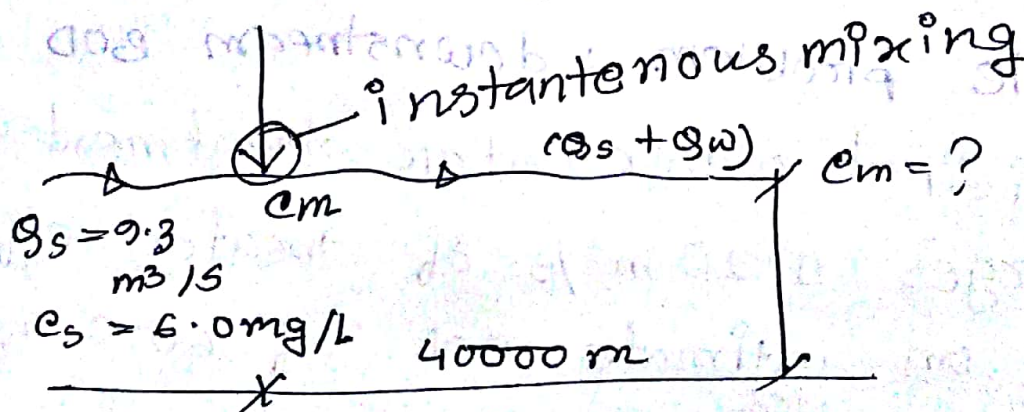 instantenous mixing
(Qs + Qw)
Cm = ?
Cm
Qs = 9.3
m3/s
Cs = 6.0mg/L
40000 m